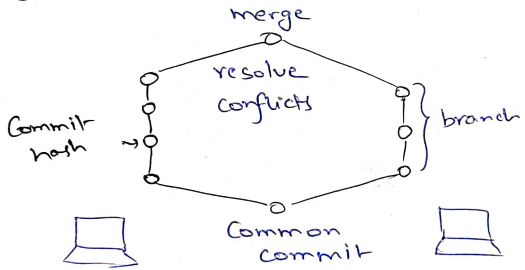 merge
resolve
conflicts
Commit
hash
branch
Common
commit